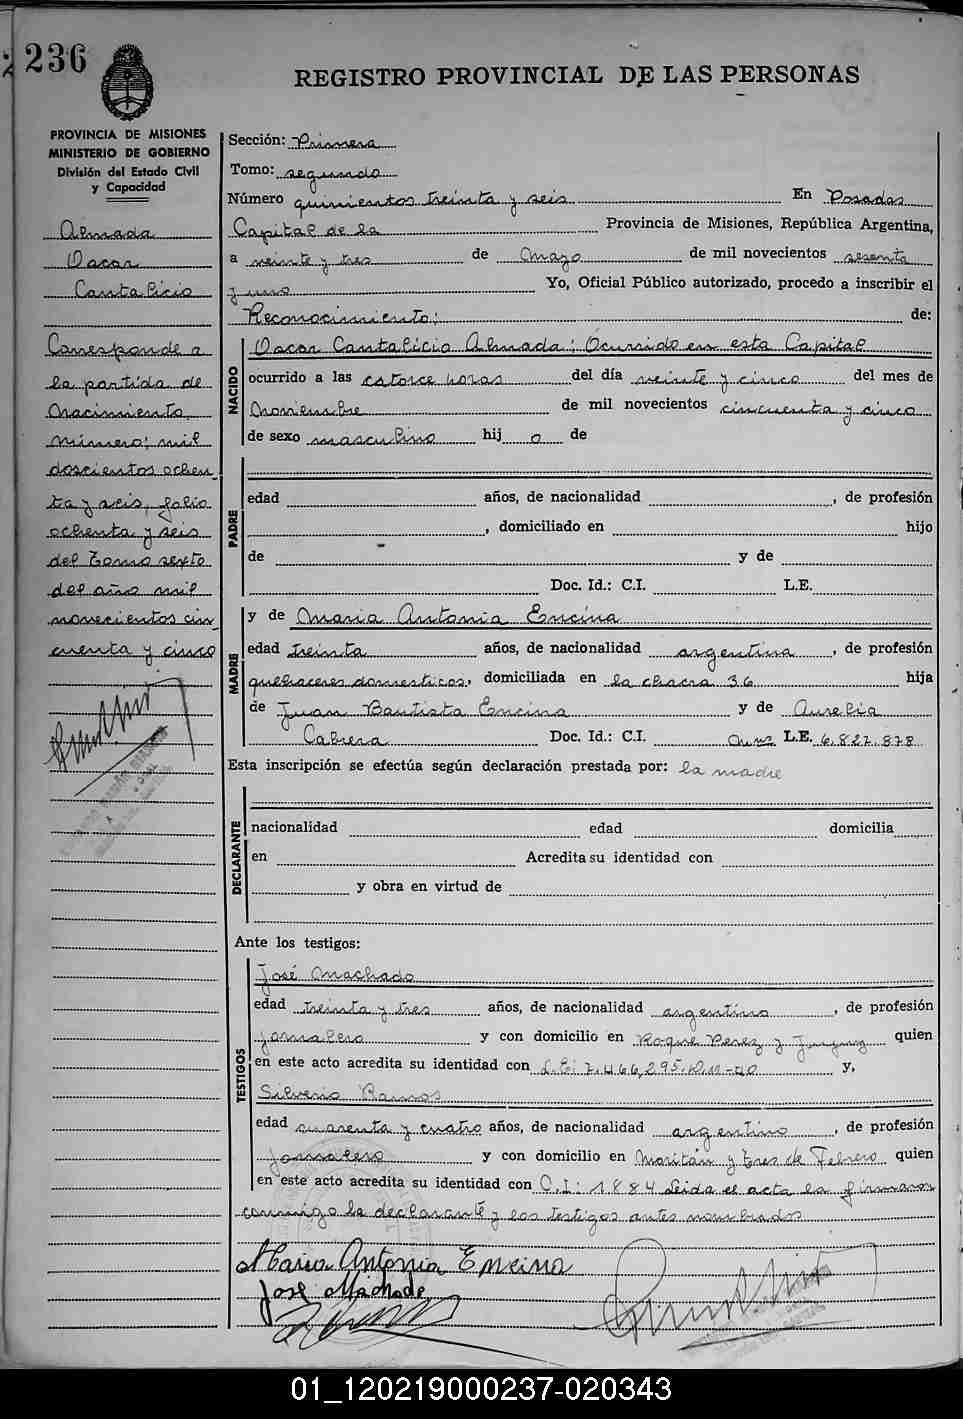 236
REGISTRO PROVINCIAL DE LAS PERSONAS
PROVINCIA DE MISIONES
MINISTERIO DE GOBIERNO
División del Estado Civil
y Capacidad
Almada
Oscar
Cantalicio
Corresponde a
la partida de
Nacimiento
número; mil
doscientos ochen
ta y seis, folio
ochenta y seis
del Tomo sexto
del año mil
novecientos cin
cuenta y cinco
Sección: Primera
Tomo: segundo
Número quinientos treinta y seis En Posadas
Capital de la Provincia de Misiones, República Argentina,
a veinte y tres de Mayo de mil novecientos sesenta
y uno Yo, Oficial Público autorizado, procedo a inscribir el
Reconocimiento; de:
NACIDO
Oscar Cantalicio Almada; Ocurrido en esta Capital
ocurrido a las catorce horas del día veinte y cinco del mes de
Noviembre de mil novecientos cincuenta y cinco
de sexo masculino hij o de
PADRE
edad años, de nacionalidad , de profesión
, domiciliado en hijo
de y de
Doc. Id.: C.I. L.E.
MADRE
y de Maria Antonia Encina
edad treinta años, de nacionalidad argentina, de profesión
quehaceres domesticos, domiciliada en la chacra 36 hija
de Juan Bautista Encina y de Aurelia
Cabrera Doc. Id.: C.I. L.E. 6.827.878
Esta inscripción se efectúa según declaración prestada por: la madre
DECLARANTE
nacionalidad edad domicilia
en Acredita su identidad con
y obra en virtud de
Ante los testigos:
TESTIGOS
José Machado
edad treinta y tres años, de nacionalidad argentino, de profesión
jornalero y con domicilio en Roque Perez y Jujuy quien
en este acto acredita su identidad con L.E: 7.466,295.D.M-40 y,
Silverio Ramos
edad cuarenta y cuatro años, de nacionalidad argentino, de profesión
Jornalero y con domicilio en Moritán y Tres de Febrero quien
en este acto acredita su identidad con C.I: 1884 Leida el acta la firmaron
conmigo la declarante y los testigos antes nombrados
Maria Antonia Encina
José Machado
01_120219000237-020343